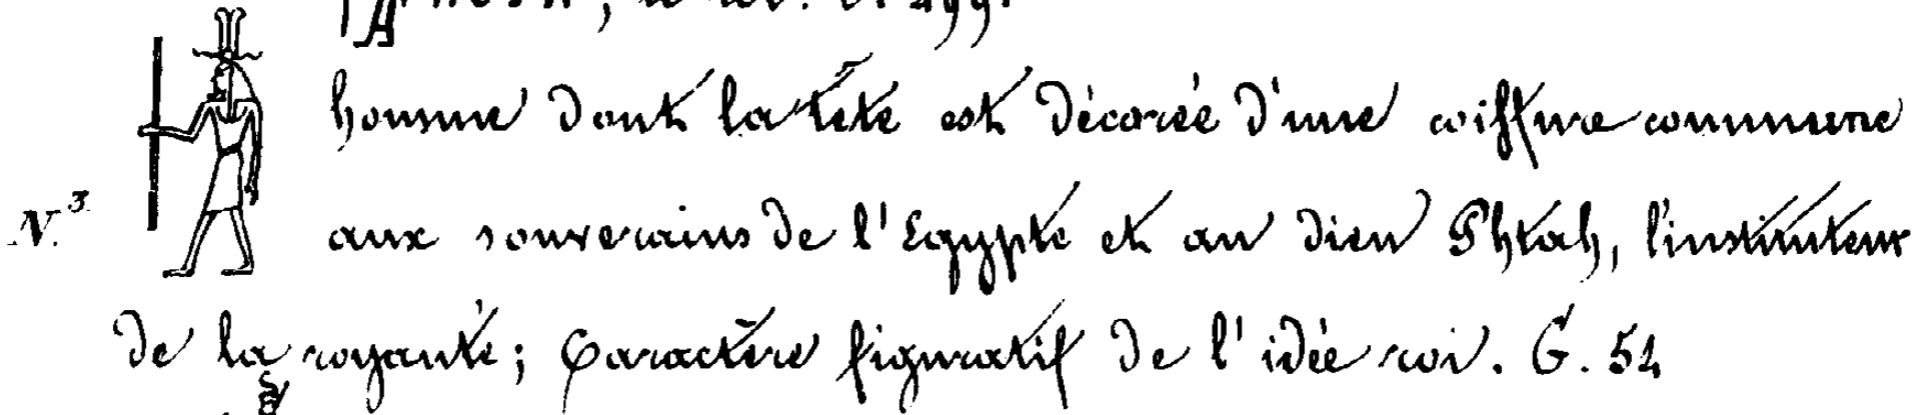 homme dont la tête est décorée d'une coiffure commune
N.3 aux souverains de l'Egypte et au dieu Phtah, l'instituteur
de la royauté; Caractère figuratif de l'idée roi. G. 54